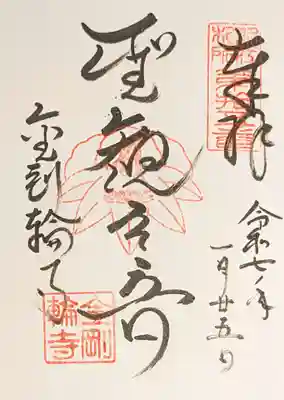 奉拝
令和七年
一月廿五日
聖観音
金剛輪寺
金剛
輪寺